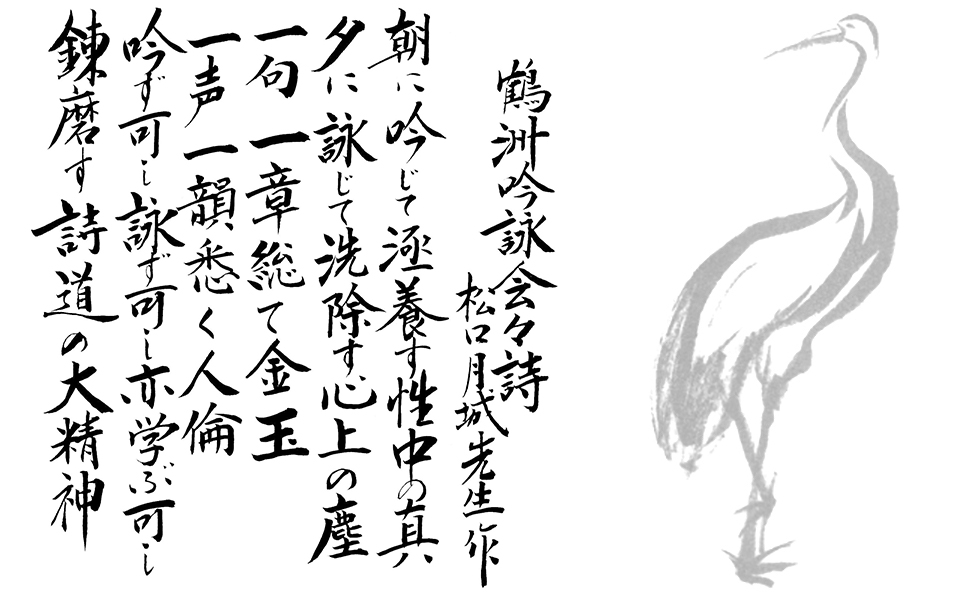 鶴洲吟詠会々詩
松口月城先生作
朝に吟じて涵養す性中の真
夕に詠じて洗除す心上の塵
一句一章総て金玉
一声一韻悉く人倫
吟ず可し詠ず可し亦学ぶ可し
錬磨す詩道の大精神